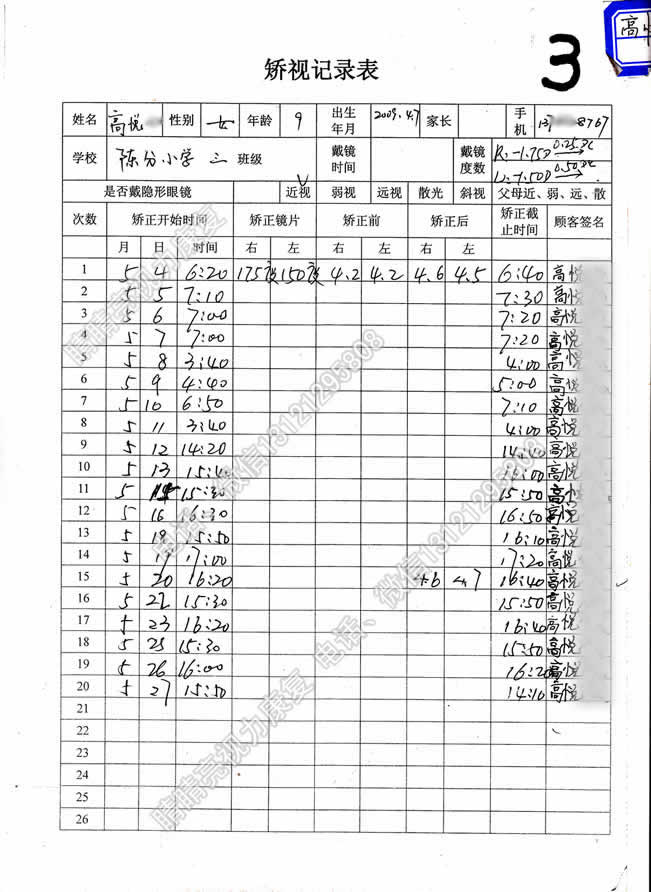 高
3
矫视记录表
姓名 高悦 性别 女 年龄 9 出生年月 2009.4.7 家长 手机 8767
学校 陈分小学 三 班级 戴镜时间 戴镜度数 R:-1.75D 0.25DC
L:-1.50D 0.50DC
是否戴隐形眼镜 近视 √ 弱视 远视 散光 斜视 父母近、弱、远、散
次数 矫正开始时间 矫正镜片 矫正前 矫正后 矫正截止时间 顾客签名
月 日 时间 右 左 右 左 右 左
1 5 4 6:20 175度 150度 4.2 4.2 4.6 4.5 6:40 高悦
2 5 5 7:10 7:30 高悦
3 5 6 7:00 7:20 高悦
4 5 7 7:00 7:20 高悦
5 5 8 3:40 4:00 高悦
6 5 9 4:40 5:00 高悦
7 5 10 6:50 7:10 高悦
8 5 11 3:40 4:00 高悦
9 5 12 14:20 14:40 高悦
10 5 13 15:40 16:00 高悦
11 5 15:30 15:50 高悦
12 5 16 16:30 16:50 高悦
13 5 15:50 16:10 高悦
14 5 19 17:00 17:20 高悦
15 5 20 16:20 4.6 4.7 16:40 高悦
16 5 22 15:30 15:50 高悦
17 5 23 16:20 16:40 高悦
18 5 25 15:30 15:50 高悦
19 5 26 16:00 16:20 高悦
20 5 27 15:50 14:10 高悦
21
22
23
24
25
26
睛睛亮视力康复 电话、微信13121295808
睛睛亮视力康复 电话、微信13121295808